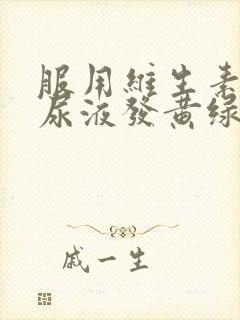 服用維生素
尿液發黃綠
戚一生